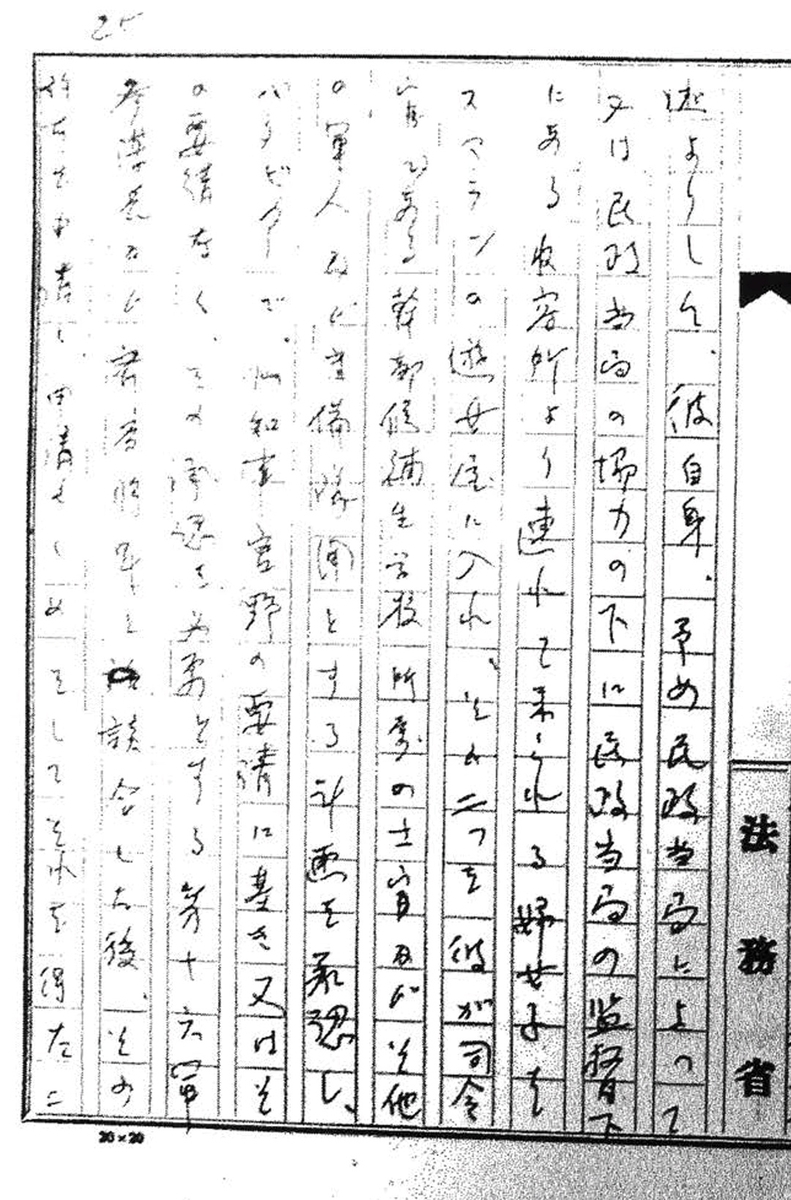 25
法務省
述よりして、彼自身、予め民政当局によつて
又は民政当局の協力の下に民政当局の監督下
にある収容所より連れて来られる婦女子を
スマランの遊女屋に入れ、それ二つを彼が司令
官である幹部候補生学校所属の士官及びその他
の軍人及び警備隊用とする計画を承認し、
バタビヤで、州知事宮野の要請に基き又はそ
の要請なく、その承認を必要とする第十六軍
参謀長及び 将軍と 談合した後、その
を申請し、申請せしめ をして を得た
20×20